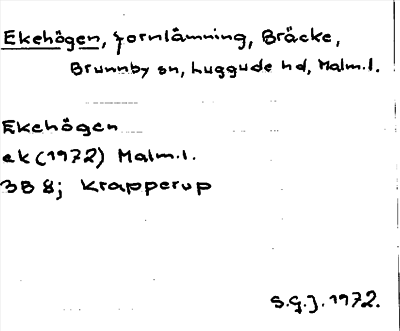 Ekehögen, fornlämning, Bräcke,
Brunnby sn, Luggude hd, Malm.l.
Ekehögen
ek (1972) Malm.l.
3B 8; Krapperup
S.G.J. 1972.